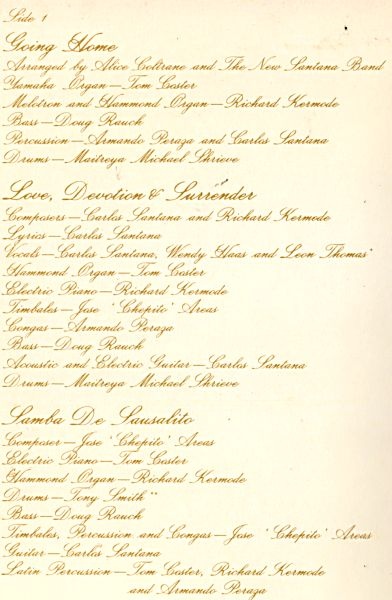 Side 1
Going Home
Arranged by Alice Coltrane and The New Santana Band
Yamaha Organ—Tom Coster
Melotron and Hammond Organ—Richard Kermode
Bass—Doug Rauch
Percussion—Armando Peraza and Carlos Santana
Drums—Maitreya Michael Shrieve
Love, Devotion & Surrender
Composers—Carlos Santana and Richard Kermode
Lyrics—Carlos Santana
Vocals—Carlos Santana, Wendy Haas and Leon Thomas*
Hammond Organ—Tom Coster
Electric Piano—Richard Kermode
Timbales—Jose 'Chepito' Areas
Congas—Armando Peraza
Bass—Doug Rauch
Acoustic and Electric Guitar—Carlos Santana
Drums—Maitreya Michael Shrieve
Samba De Sausalito
Composer—Jose 'Chepito' Areas
Electric Piano—Tom Coster
Hammond Organ—Richard Kermode
Drums—Tony Smith**
Bass—Doug Rauch
Timbales, Percussion and Congas—Jose 'Chepito' Areas
Guitar—Carlos Santana
Latin Percussion—Tom Coster, Richard Kermode
and Armando Peraza